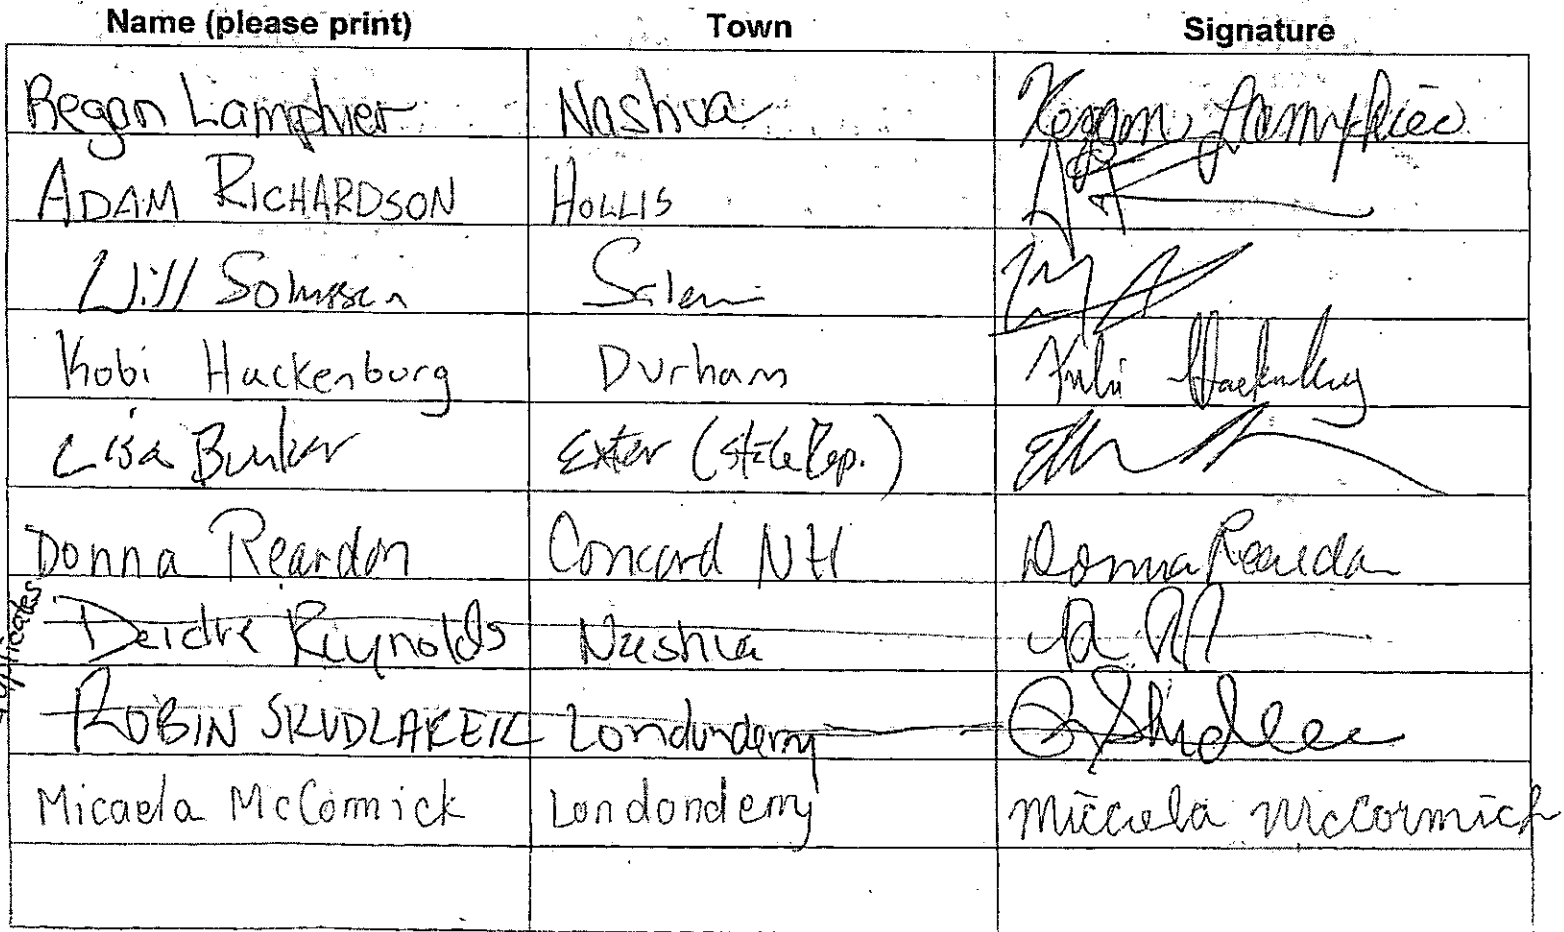 Name (please print) Town Signature
Regan Lamphier Nashua Regan Lamphier
ADAM RICHARDSON HOLLIS
Will Salem
Kobi Hackenburg Durham Kobi Hackenburg
Lisa Bunker Exter (State Rep.)
Donna Reardon Concord NH Donna Reardon
Deidre Reynolds Nashua
duplicates
ROBIN SKUDLAREK Londonderry
Micaela McCormick Londonderry Micaela McCormick